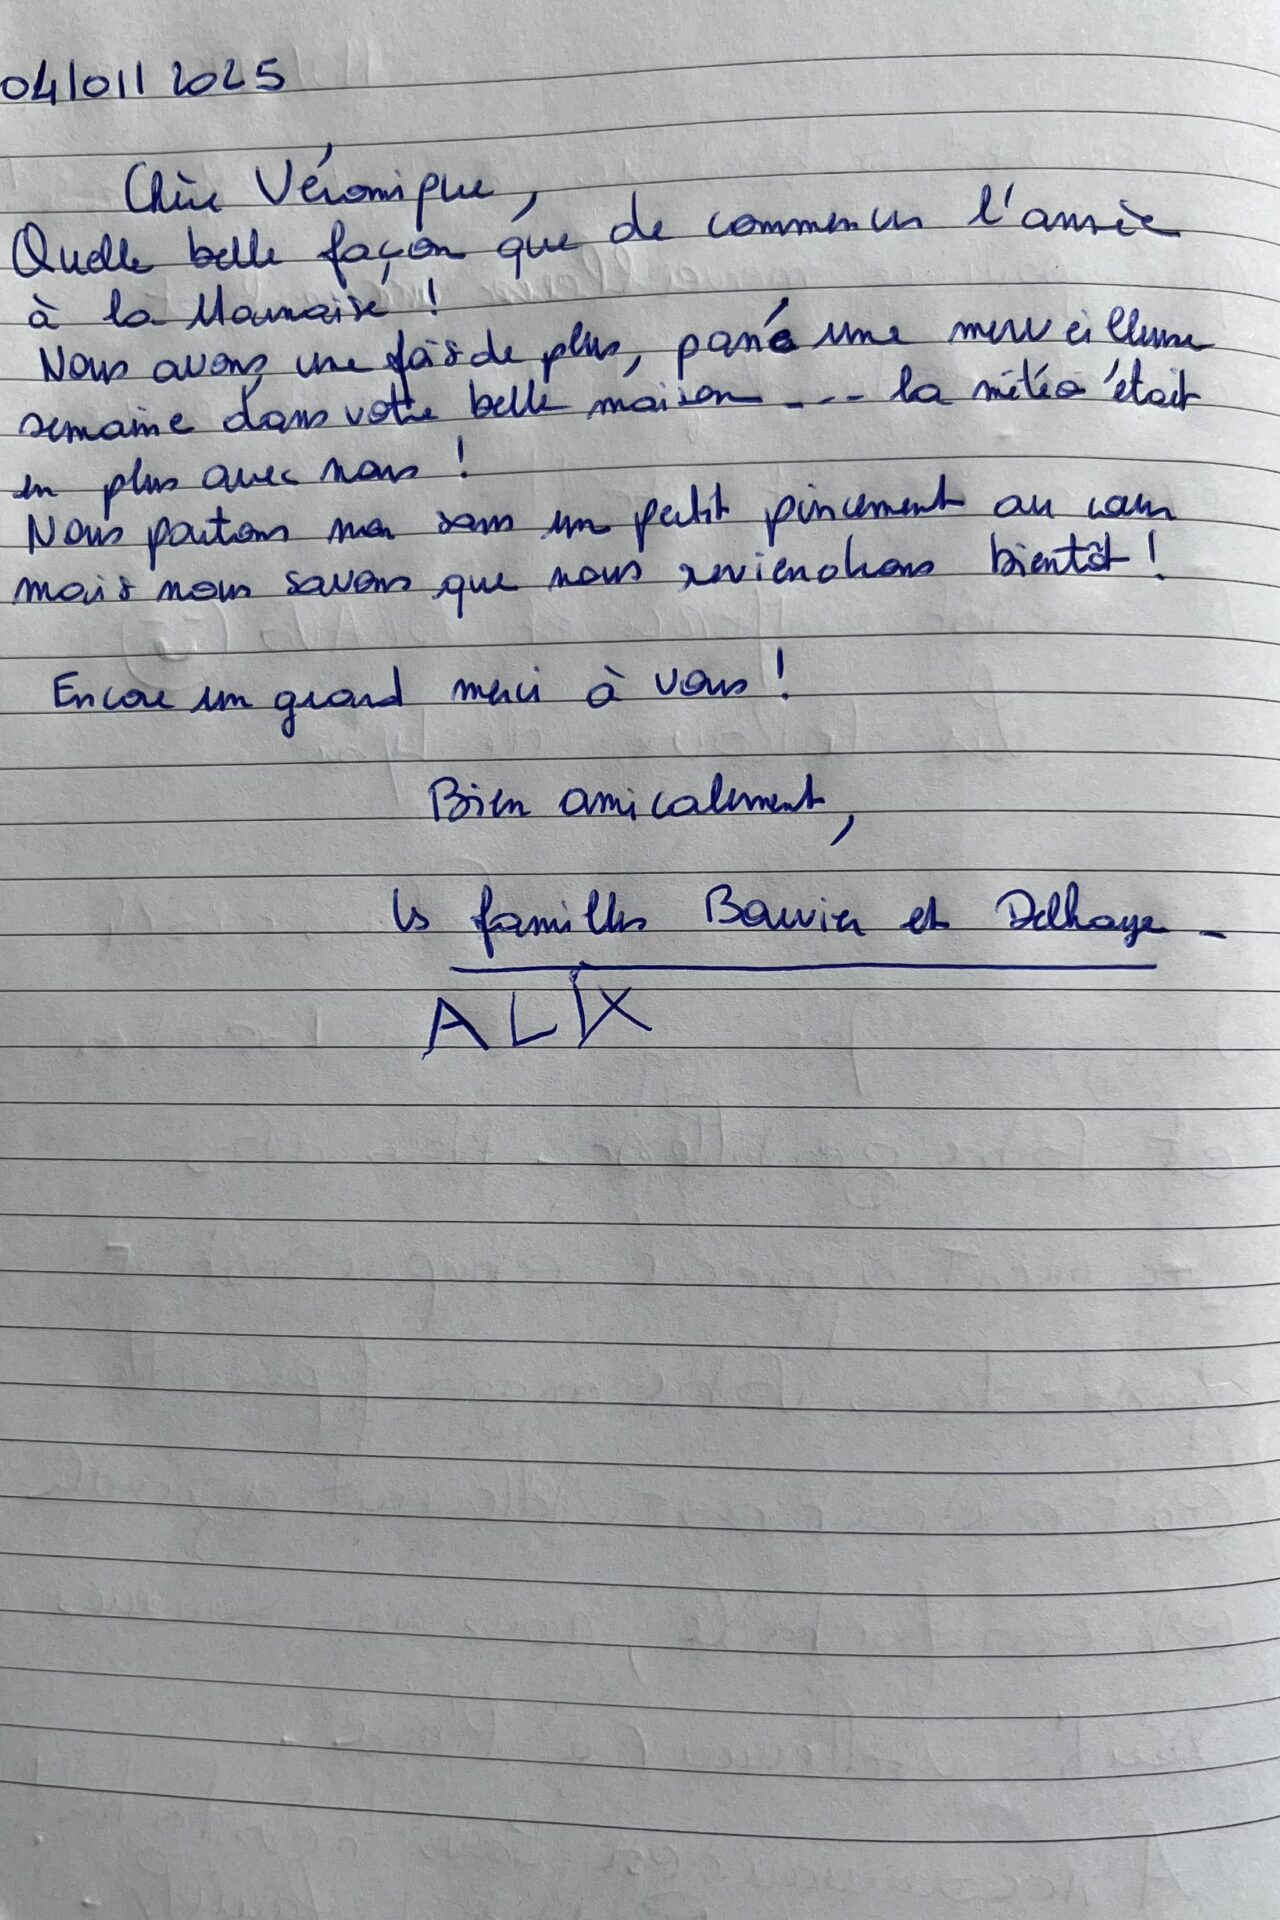 04/01/2025
Chère Véronique,
Quelle belle façon que de commencer l'année
à la Mauraise !
Nous avons une fois de plus, passé une merveilleuse
semaine dans votre belle maison .... la météo était
en plus avec nous !
Nous partons non sans un petit pincement au cœur
mais nous savons que nous reviendrons bientôt !
Encore un grand merci à vous !
Bien amicalement,
les familles Bouvier et Delhaye -
ALIX